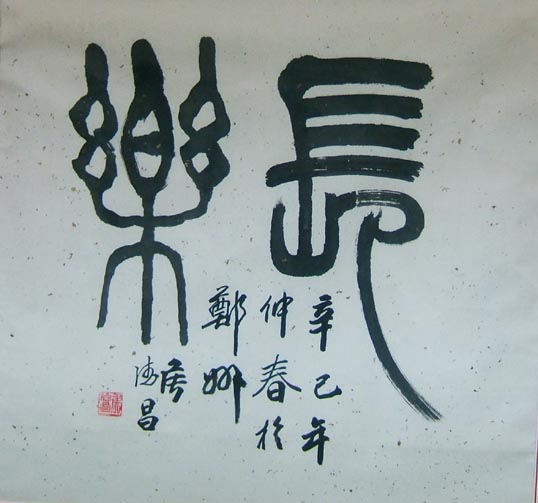 長樂
辛巳年
仲春於
鄭州
德昌